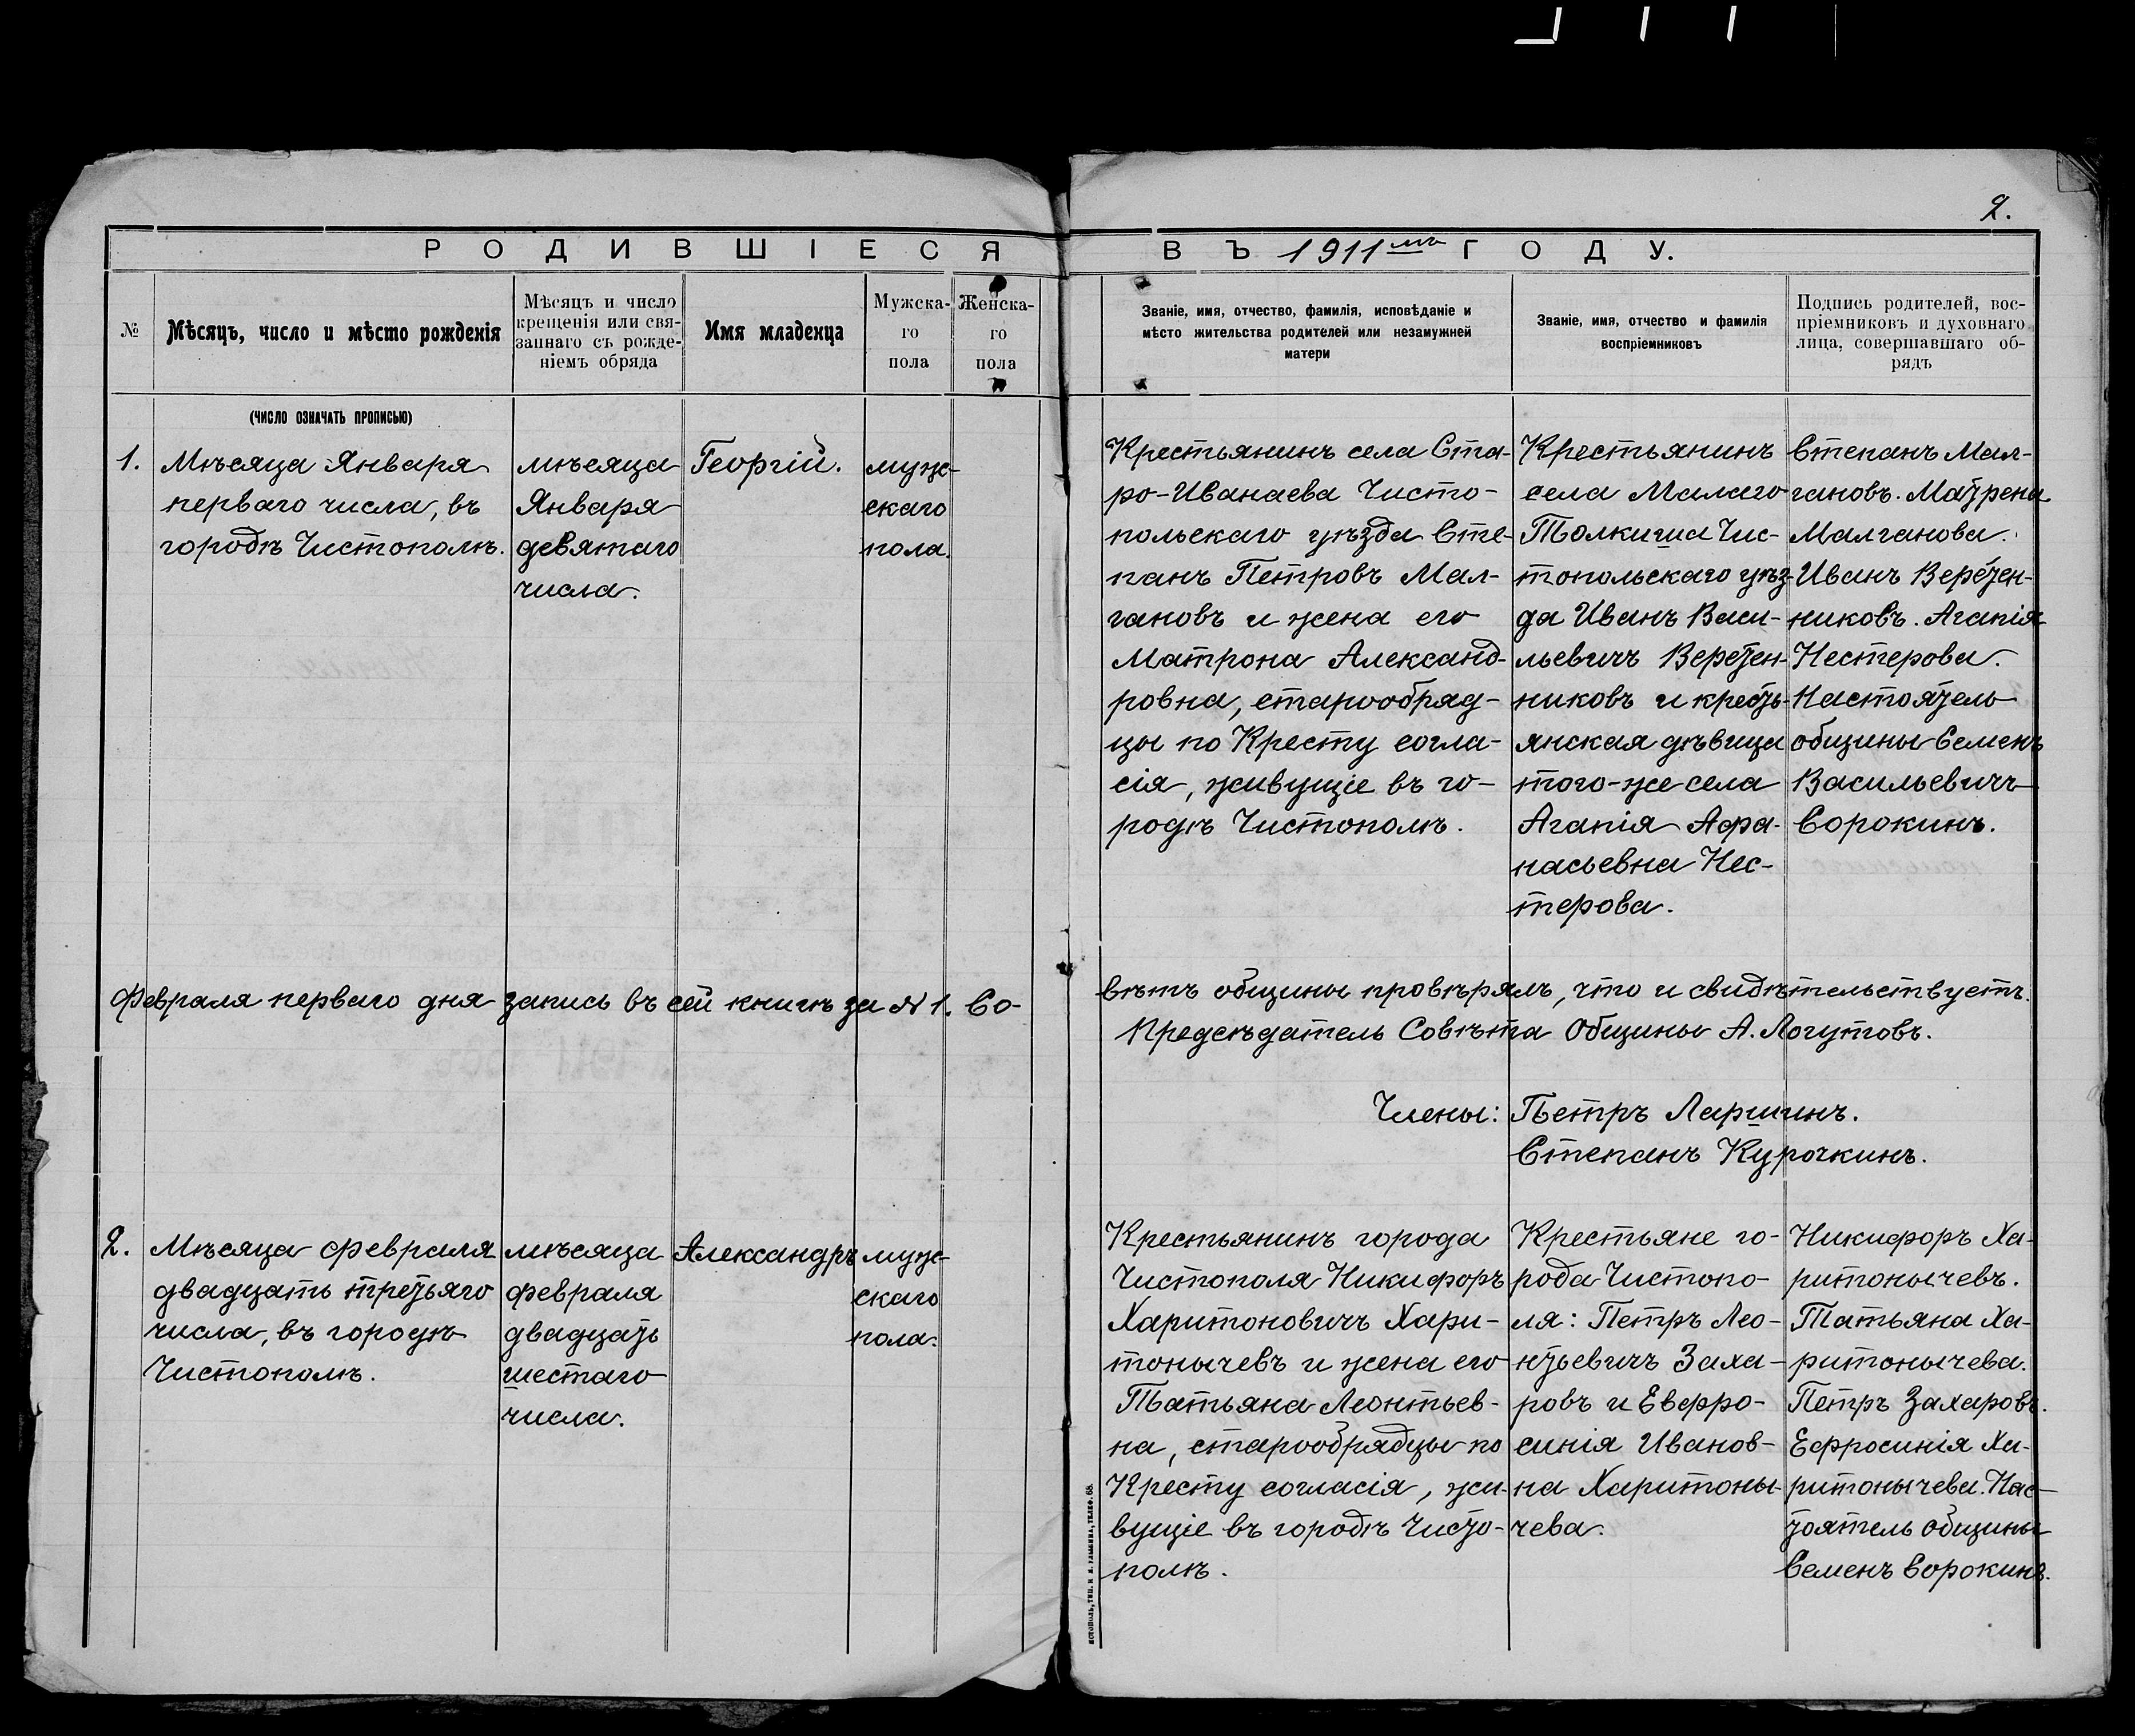 2.
РОДИВШІЕСЯ ВЪ 1911мъ ГОДУ.
№
Мѣсяцъ, число и мѣсто рожденія
Мѣсяцъ и число
крещенія или свя-
заннаго съ рожде-
ніемъ обряда
Имя младенца
Мужска-
го
пола
Женска-
го
пола
Званіе, имя, отчество, фамилія, исповѣданіе и
мѣсто жительства родителей или незамужней
матери
Званіе, имя, отчество и фамилія
воспріемниковъ
Подпись родителей, вос-
пріемниковъ и духовнаго
лица, совершавшаго об-
рядъ
(число означать прописью)
1.
Мѣсяца Января
перваго числа, въ
городѣ Чистополѣ.
мѣсяца
Января
девятаго
числа.
Георгій.
муж-
скаго
пола.
Крестьянинъ села Ста-
ро-Иванаева Чисто-
польскаго уѣзда Сте-
панъ Петровъ Мал-
гановъ и жена его
Матрона Александ-
ровна, старообряд-
цы по Кресту согла-
сія, живущіе въ го-
родѣ Чистополѣ.
Крестьянинъ
села Малаго
Толкиша Чис-
топольскаго уѣз-
да Иванъ Васи-
льевичъ Веретен-
никовъ и кресть-
янская дѣвица
того-же села
Агапія Афа-
насьевна Нес-
терова.
Степанъ Мал-
гановъ. Матрена
Малганова.
Иванъ Веретен-
никовъ. Агапія
Нестерова.
Настоятель
общины Семенъ
Васильевичъ
Сорокинъ.
Февраля перваго дня запись въ сей книгѣ за № 1. Со-
вѣтъ общины провѣрялъ, что и свидѣтельствуетъ.
Предсѣдатель Совѣта Общины А. Логутовъ.
Члены: Петръ Ларшинъ.
Степанъ Курочкинъ.
2.
Мѣсяца Февраля
двадцать третьяго
числа, въ городѣ
Чистополѣ.
мѣсяца
Февраля
двадцать
шестаго
числа.
Александръ
муж-
скаго
пола.
Крестьянинъ города
Чистополя Никифоръ
Харитоновичъ Хари-
тонычевъ и жена его
Татьяна Леонтьев-
на, старообрядцы по
Кресту согласія, жи-
вущіе въ городѣ Чисто-
полѣ.
Крестьяне го-
рода Чистопо-
ля: Петръ Лео-
нтьевичъ Заха-
ровъ и Евфро-
синія Иванов-
на Харитоны-
чева.
Никифоръ Ха-
ритонычевъ.
Татьяна Ха-
ритонычева.
Петръ Захаровъ.
Ефросинія Ха-
ритонычева. Нас-
тоятель общины
Семенъ Сорокинъ.